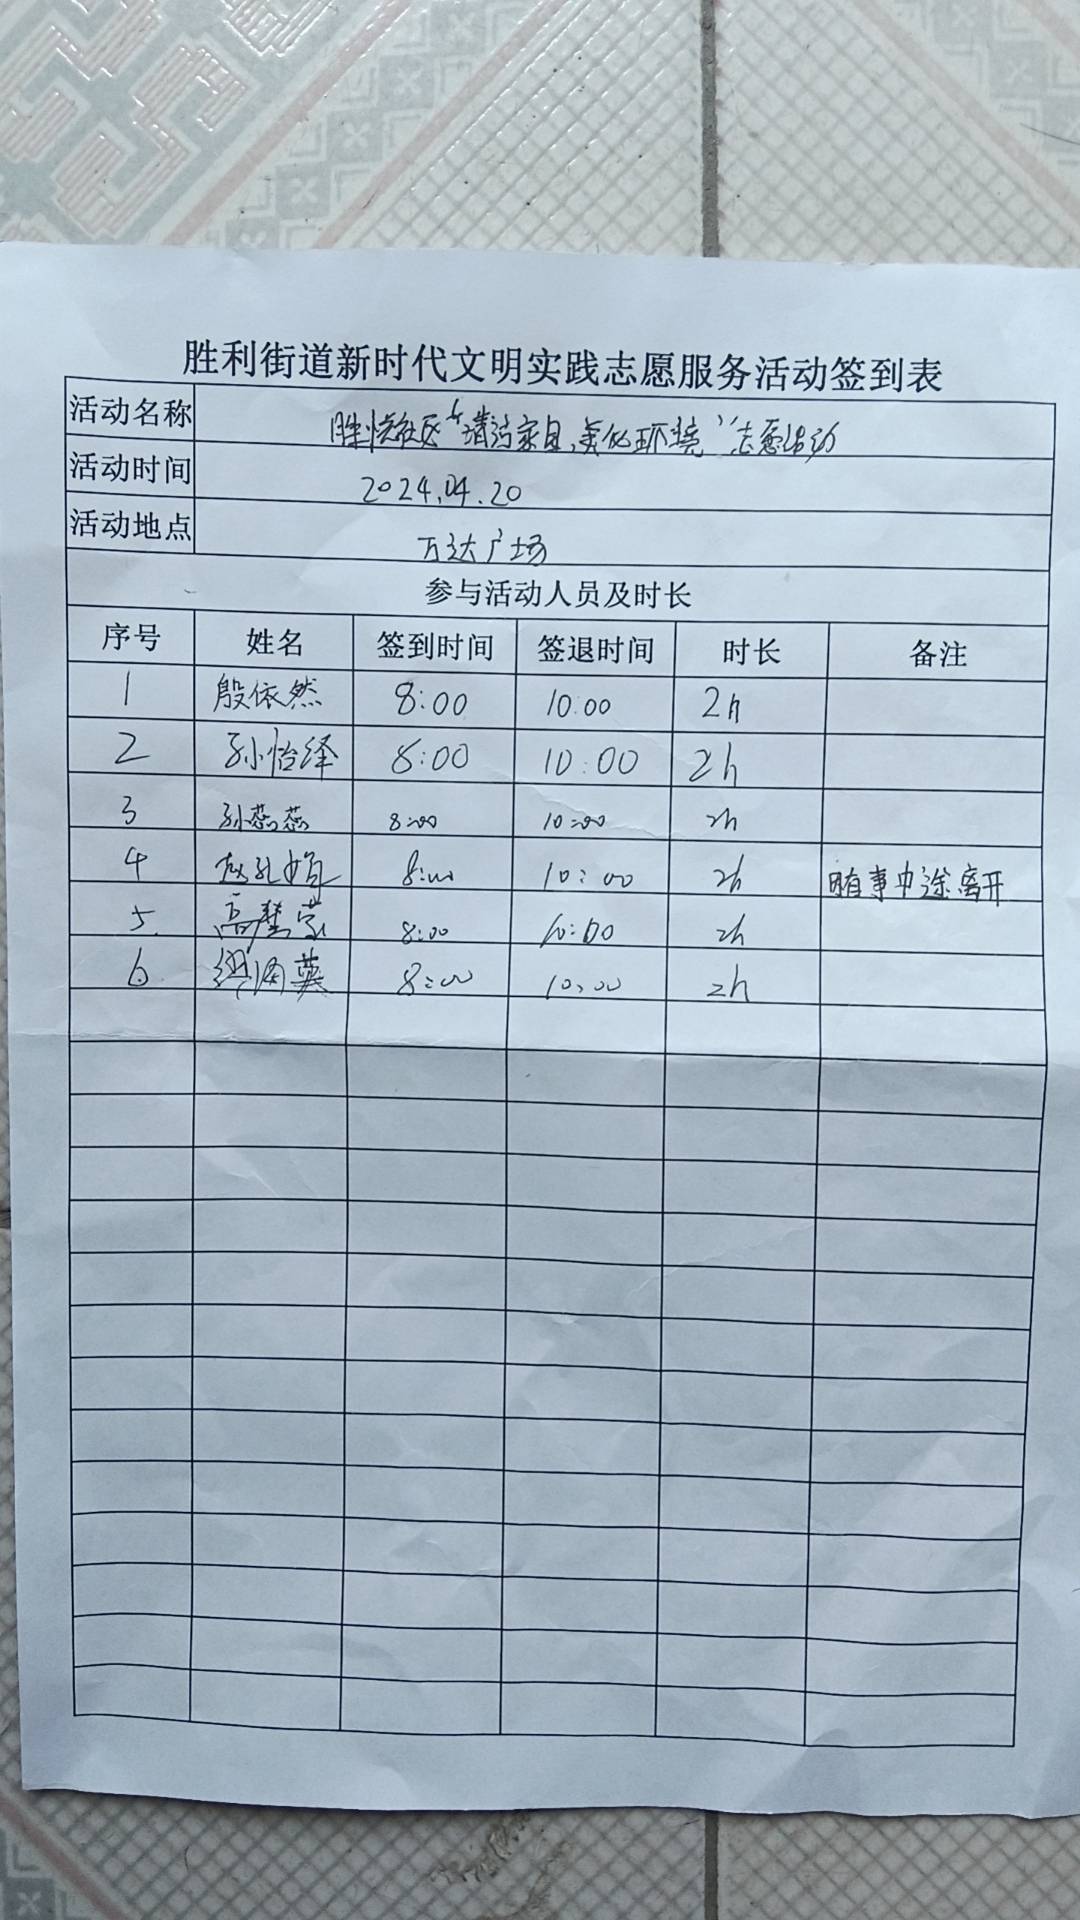 胜利街道新时代文明实践志愿服务活动签到表
活动名称 胜悦社区“清洁家园、美化环境”志愿活动
活动时间 2024.04.20
活动地点 万达广场
参与活动人员及时长
序号 姓名 签到时间 签退时间 时长 备注
1 殷依然 8:00 10:00 2h
2 孙怡绎 8:00 10:00 2h
3 孙蕊蕊 8:00 10:00 2h
4 8:00 10:00 2h 有事中途离开
5 高慧 8:00 10:00 2h
6 8:00 10:00 2h